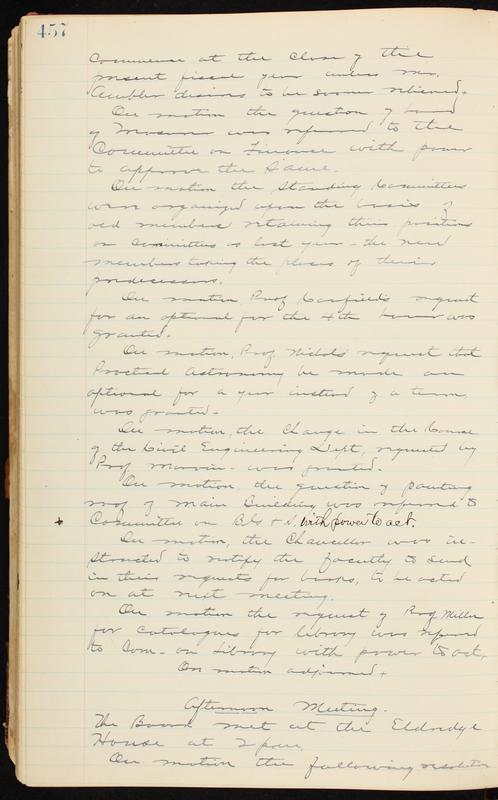 457
commence at the close of the
present fiscal year unless Mr.
Ambler desires to be sooner relieved.
On motion the question of bond
of Treasurer was referred to the
Committee on Finance with power
to approve the same.
On motion the Standing Committees
were organized upon the basis of
old members retaining their positions
on committees as last year - the new
members taking the places of their
predecessors.
On motion Prof Canfield's request
for an optional for the 4th hour was
granted.
On motion, Prof. Nichols' request that
Practical Astronomy be made an
optional for a year instead of a term,
was granted.
On motion, the change in the Course
of the Civil Engineering Dept, requested by
Prof Marvin - was granted.
On motion, the question of painting
roof of Main Building was referred to
Committee on B. & with power to act.
On motion, the Chancellor was in-
structed to notify the faculty to send
in their requests for books, to be acted
on at next meeting.
On motion the request of Prof Miller
for catalogues for library was referred
to Com. on Library with power to act.
On motion adjourned.
Afternoon Meeting.
The Board met at the Eldridge
House at 2 p.m.
On motion the following resolution